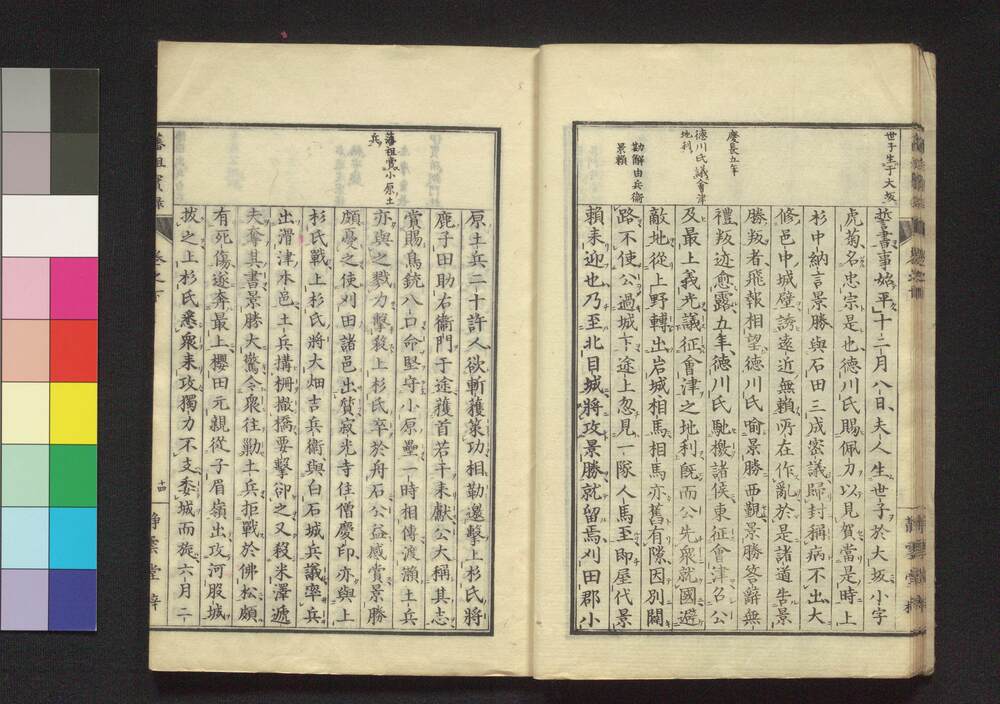 世子生于大坂
慶長五年
德川氏議會津
地利
勘解由兵衛
景賴
誓書事始平十二月八日夫人生世子於大坂小字
虎菊名忠宗是也德川氏賜佩刀以見賀當是時上
杉中納言景勝與石田三成密議歸封稱病不出大
修邑中城壁誘遠近無賴所在作亂於是諸道告景
勝叛者飛報相望德川氏喻景勝西覲景勝答辭無
禮叛迹愈露五年德川氏馳檄諸侯東征會津召公
及最上義光議征會津之地利既而公先衆就國避
敵地從上野轉出岩城相馬相馬亦舊有隙因別闢
路不使公過城下途上忽見一隊人馬至即屋代景
賴來迎也乃至北目城將攻景勝就留焉刈田郡小
藩祖賞小原土
兵
原土兵二十許人欲斬獲策功相勒邀擊上杉氏將
鹿子田助右衞門于途獲首若干來獻公大稱其志
賞賜鳥銃八口命堅守小原壘一時相傳渡瀨土兵
亦與之戮力擊殺上杉氏卒於舟石公益感賞景勝
頗憂之使刈田諸邑出質寂光寺住僧慶印亦與上
杉氏戰上杉氏將大畑吉兵衛與白石城兵議率兵
出滑津本邑土兵搆柵撤橋要擊卻之又殺米澤遞
夫奪其書景勝大驚令衆往勦土兵拒戰於佛松頗
有死傷遂奔最上櫻田元親從子眉嶺出攻河股城
拔之上杉氏悉衆來攻獨力不支委城而旋六月二
藩祖實錄
卷之下
十四
靜雲堂梓